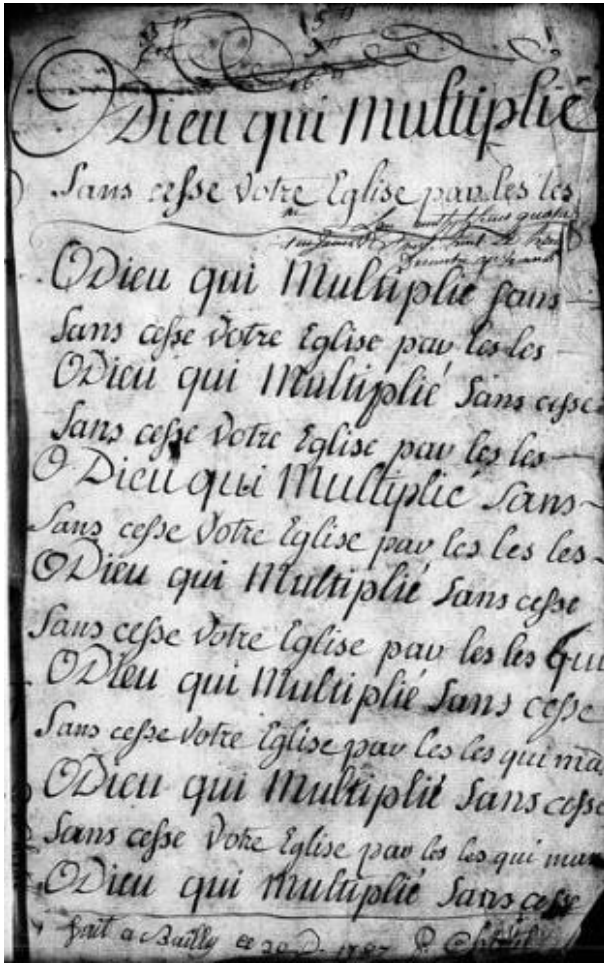 ODieu qui multiplié
Sans cesse Votre Eglise par les les
ODieu qui Multiplié sans
Sans cesse votre Eglise par les les
ODieu qui Multiplié Sans cesse
Sans cesse Votre Eglise par les les
O Dieu qui Multiplié Sans
Sans cesse Votre Eglise par les les les
ODieu qui Multiplié Sans cesse
Sans cesse Votre Eglise par les les qui
ODieu qui Multiplié Sans cesse
Sans cesse Votre Eglise par les les qui ma
ODieu qui Multiplié Sans cesse
Sans cesse Votre Eglise par les les qui man
ODieu qui Multiplié Sans cesse
fait a Bailly ce 20 D. 1787 P.